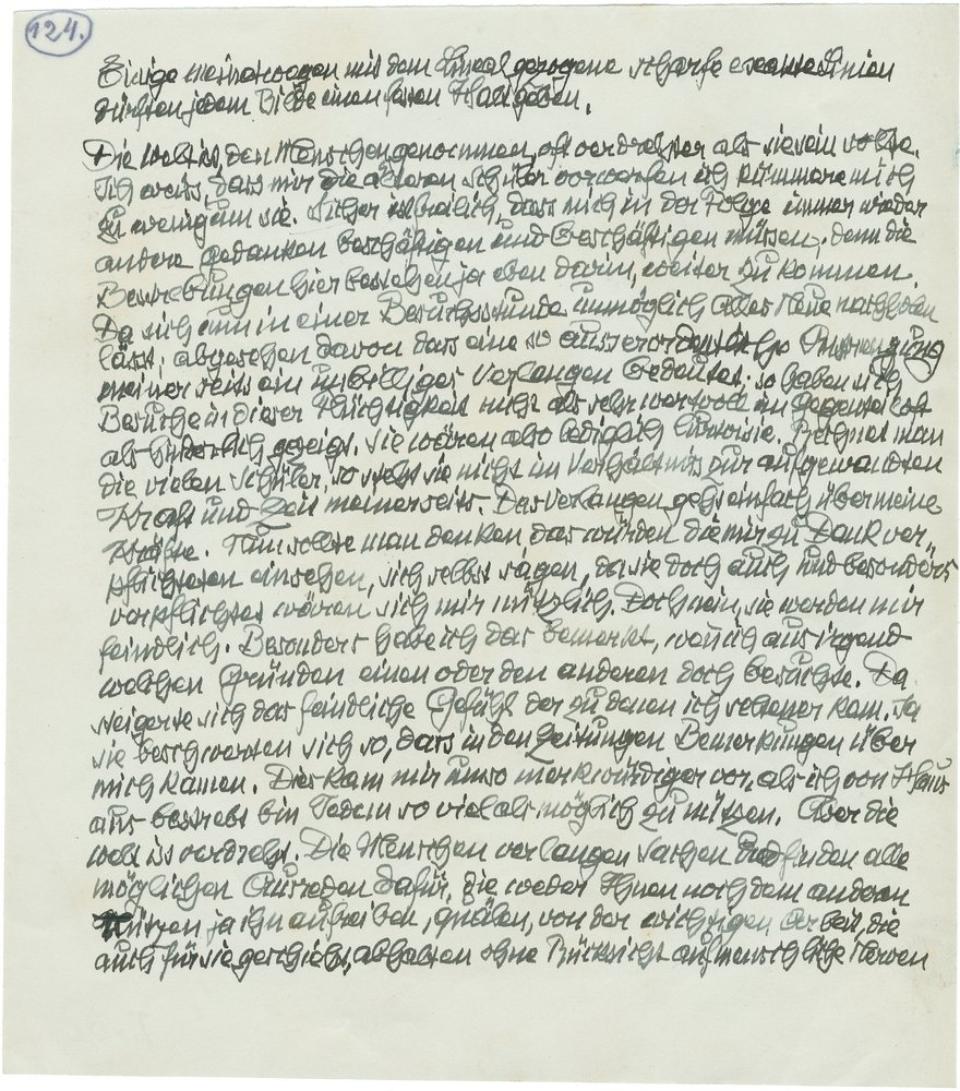 124.
Einige meinetwegen mit dem Lineal gezogene scharfe exakte Linien
dürften jedem Bilde einen festen Halt geben.
Die Welt ist, den Menschen genommen, oft verdrehter als sie sein sollte.
Ich weiss, dass mir die älteren Schüler vorwerfen ich kümmere mich
zu wenig um sie. Sicher ist freilich, dass mich in der Folge immer wieder
andere Gedanken beschäftigen und beschäftigen müssen, denn die
Bestrebungen hier bestehen ja eben darin, weiter zu kommen.
Da sich nun in einer Besuchsstunde unmöglich alles Neue nachholen
lässt, abgesehen davon dass eine so ausserordentliche Anstrengung
meinerseits ein unbilliges Verlangen bedeutet, so haben sich
Besuche in dieser Flüchtigkeit nicht als sehr wertvoll im Gegenteil oft
als hinderlich gezeigt. Sie wären also lediglich Curtoisie. Rechnet man
die vielen Schüler, so steht sie nicht im Verhältnis zur aufgewandten
Kraft und Zeit meinerseits. Das Verlangen geht einfach über meine
Kräfte. Nun sollte man denken, das würden die mir zu Dank ver-
pflichteten einsehen, sich selbst sagen, da sie doch auch und besonders
verpflichtet wären sich mir nützlich. Doch nein, sie werden mir
feindlich. Besonders habe ich das bemerkt, wenn ich aus irgend
welchen Gründen einen oder den anderen doch besuchte. Da
steigerte sich das feindliche Gefühl der zu denen ich seltener kam. Ja
sie beschwerten sich so, dass in den Zeitungen Bemerkungen über
mich kamen. Dies kam mir umso merkwürdiger vor, als ich von Haus
aus bestrebt bin Jedem so viel als möglich zu nützen. Aber die
Welt ist verdreht. Die Menschen verlangen Sachen und finden alle
möglichen Ausreden dafür, die weder Ihnen noch dem anderen
nützen ja ihn aufreiben, quälen, von der wichtigen Arbeit, die
auch für sie geschieht, abhalten ohne Rücksicht auf menschliche Nerven